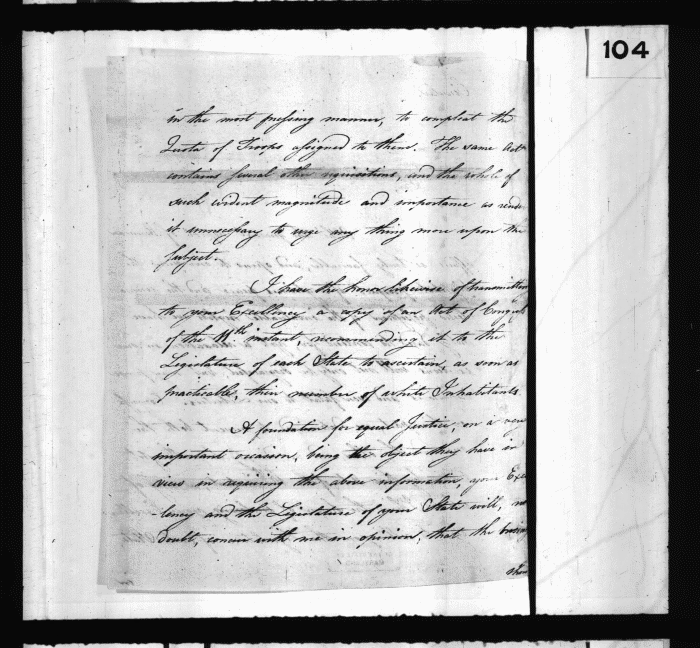 104
in the most pressing manner, to compleat the
Quota of Troops assigned to them. The same Act
contains several other requisitions, and the whole of
such evident magnitude and importance as rende
it unnecessary to urge any thing more upon the
subject.
I have the honor likewise of transmitting
to your Excellency a copy of an Act of Congress
of the 11th instant, recommending it to the
Legislature of each State to ascertain, as soon as
practicable, their number of white Inhabitants.
A foundation for equal Justice, on a very
important occasion, being the object they have in
view in requiring the above information, your Excel
-lency and the Legislature of your State will, no
doubt, concur with me in opinion, that the busin
shou